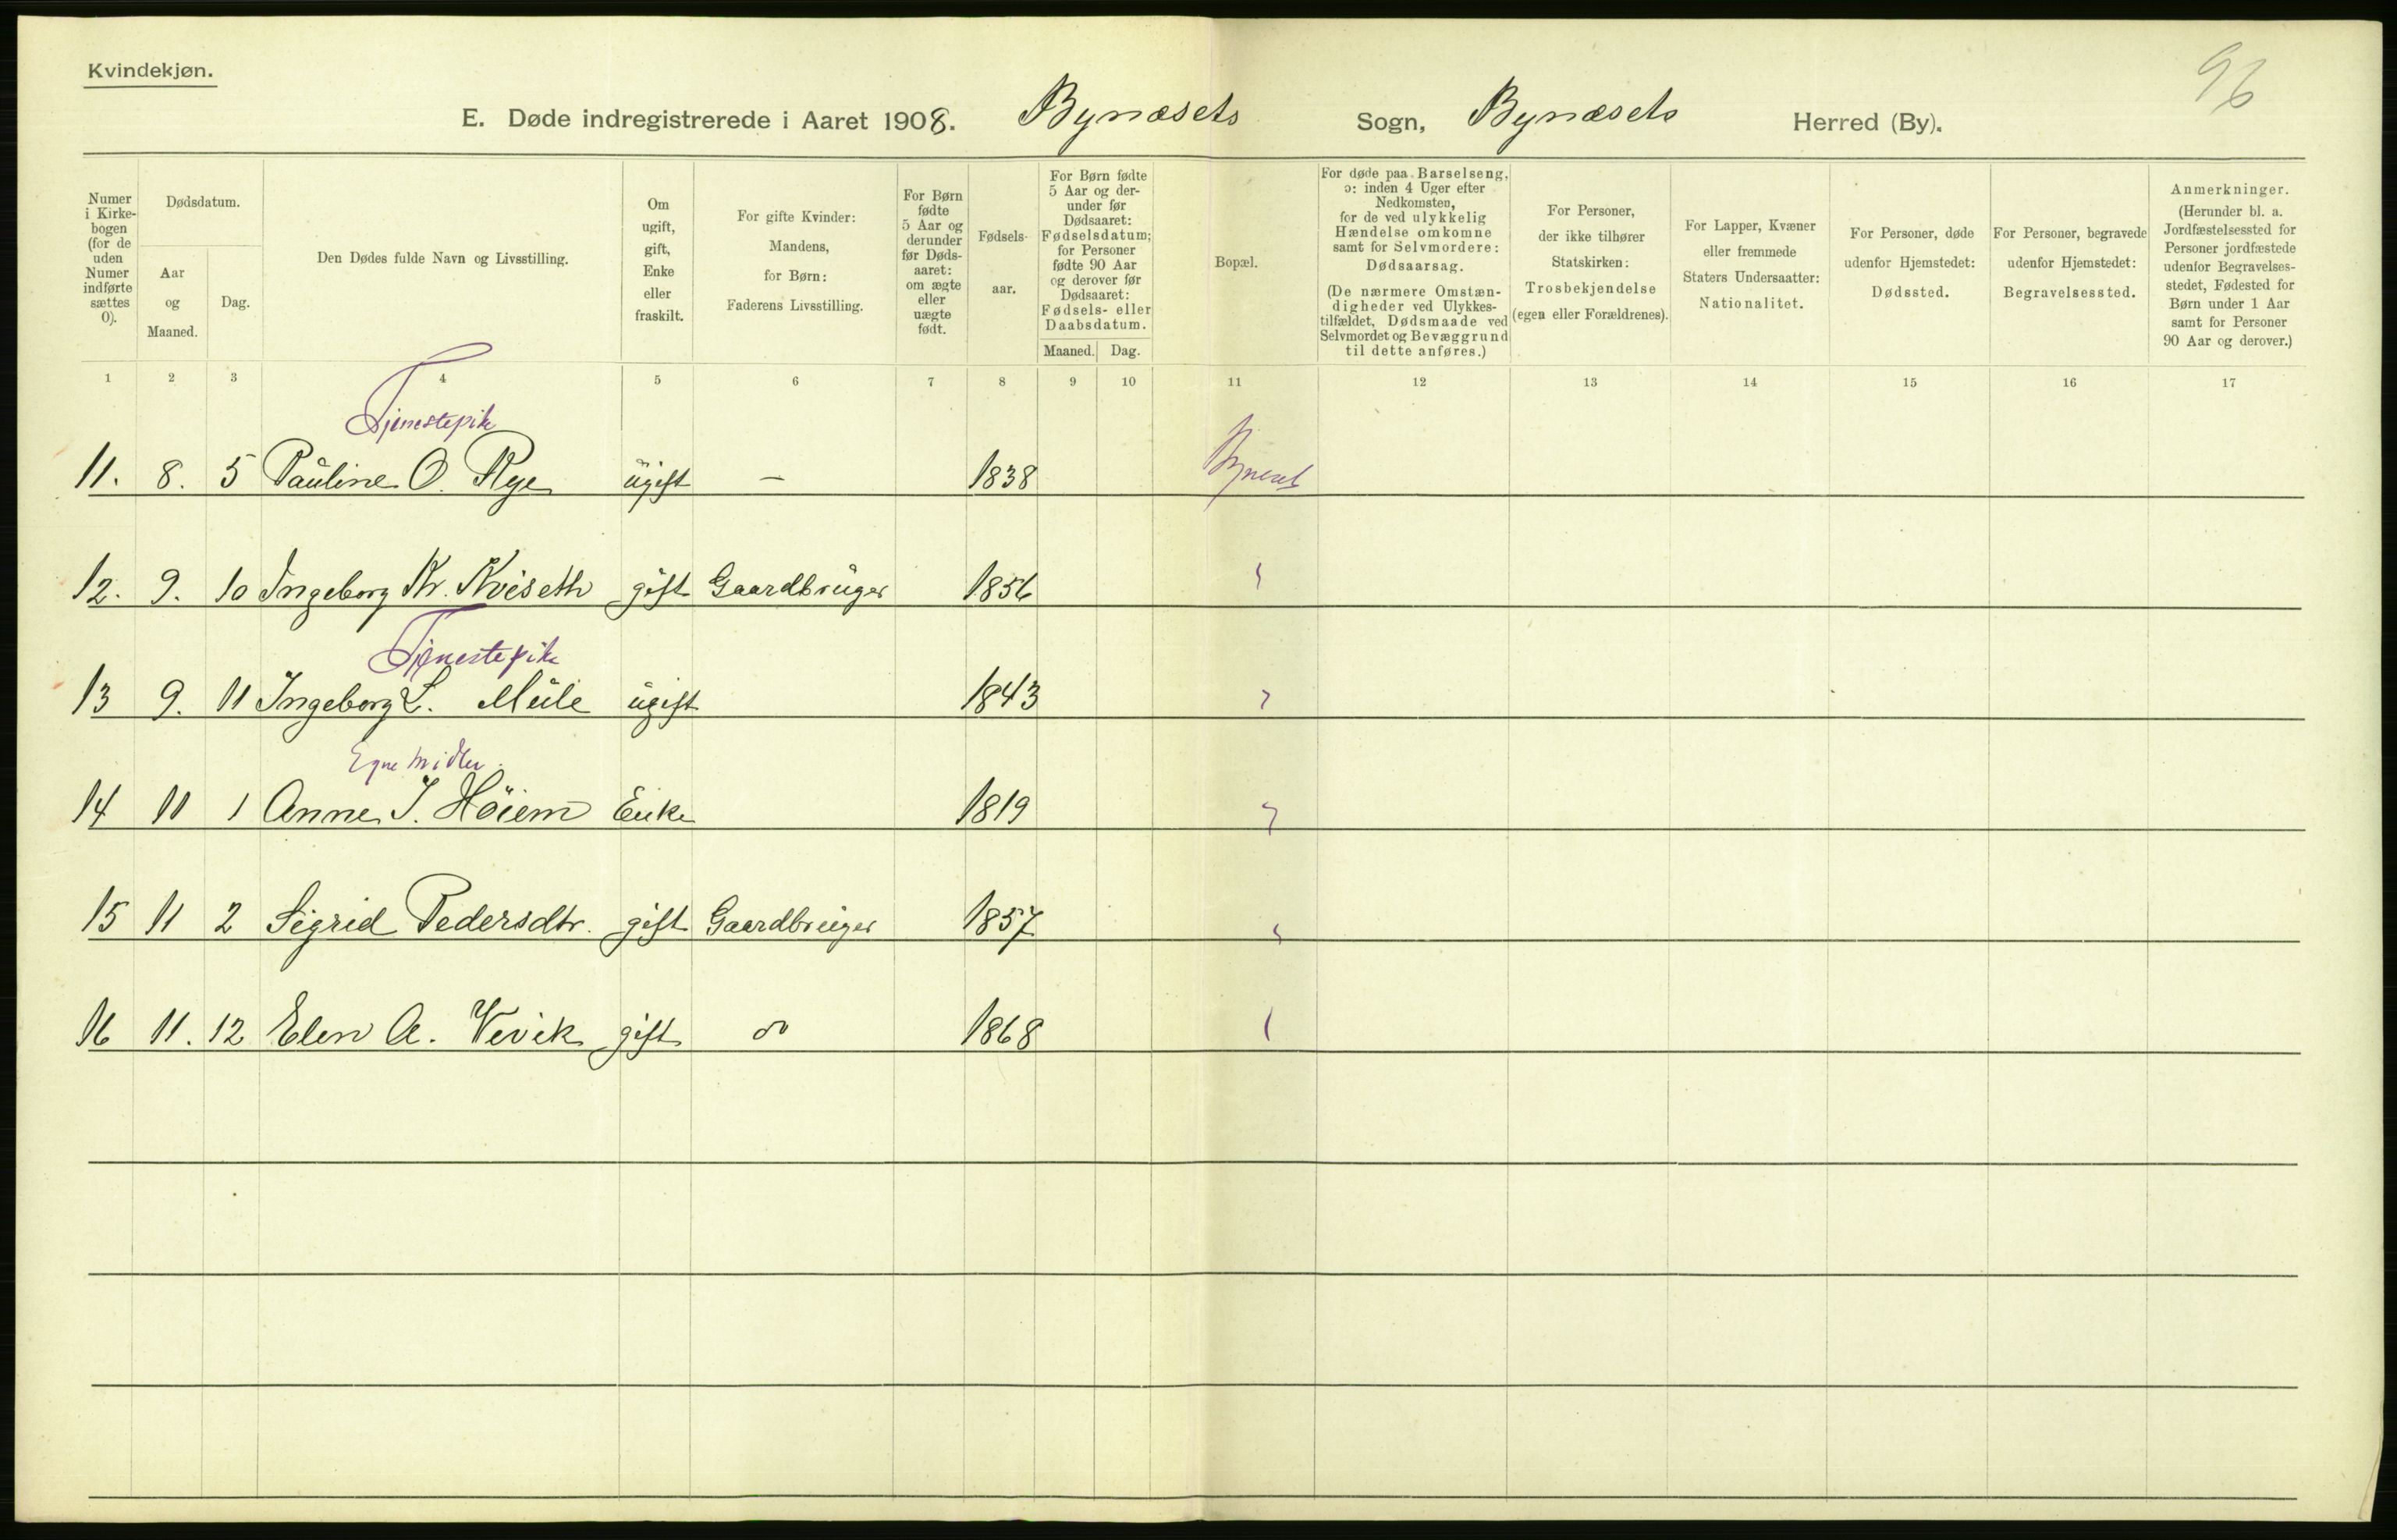 Kvindekjøn.
96
E. Døde indregistrerede i Aaret 1908. Bynæsets Sogn, Bynæsets Herred (By).
Numer i Kirke-bogen (for de uden Numer indførte sættes 0).
Dødsdatum.
Aar og Maaned.
Dag.
Den Dødes fulde Navn og Livsstilling.
Om ugift, gift, Enke eller fraskilt.
For gifte Kvinder: Mandens, for Børn: Faderens Livsstilling.
For Børn fødte 5 Aar og derunder før Døds-aaret: om ægte eller uægte født.
Fødsels-aar.
For Børn fødte 5 Aar og der-under før Dødsaaret: Fødselsdatum; for Personer fødte 90 Aar og derover før Dødsaaret: Fødsels- eller Daabsdatum.
Maaned. Dag.
Bopæl.
For døde paa Barselseng, ɔ: inden 4 Uger efter Nedkomsten, for de ved ulykkelig Hændelse omkomne samt for Selvmordere: Dødsaarsag. (De nærmere Omstæn-digheder ved Ulykkes-tilfældet, Dødsmaade ved Selvmordet og Bevæggrund til dette anføres.)
For Personer, der ikke tilhører Statskirken: Trosbekjendelse (egen eller Forældrenes).
For Lapper, Kvæner eller fremmede Staters Undersaatter: Nationalitet.
For Personer, døde udenfor Hjemstedet: Dødssted.
For Personer, begravede udenfor Hjemstedet: Begravelsessted.
Anmerkninger. (Herunder bl. a. Jordfæstelsessted for Personer jordfæstede udenfor Begravelses-stedet, Fødested for Børn under 1 Aar samt for Personer 90 Aar og derover.)
1 2 3 4 5 6 7 8 9 10 11 12 13 14 15 16 17
Tjenestepik
11. 8. 5 Pauline O. Rye ugift — 1838 Bynæset
12. 9. 10 Ingeborg Kr. Kviseth gift Gaardbruger 1856 "
Tjenestepik
13 9. 11 Ingeborg L. Mule ugift 1843 "
Egne midler.
14 11 1 Anne J. Höiem Enke 1819 "
15 11 2 Sigrid Pedersdtr. gift Gaardbruger 1857 "
16 11. 12 Elen A. Vevik gift do 1868 "